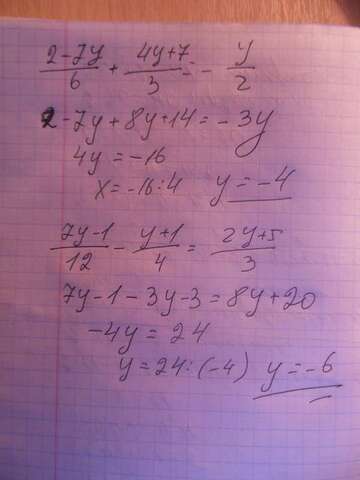 (2-7y)/6 + (4y+7)/3 = - y/2
2-7y+8y+14=-3y
4y=-16
x=-16:4 y=-4
(7y-1)/12 - (y+1)/4 = (2y+5)/3
7y-1-3y-3=8y+20
-4y=24
y=24:(-4) y=-6